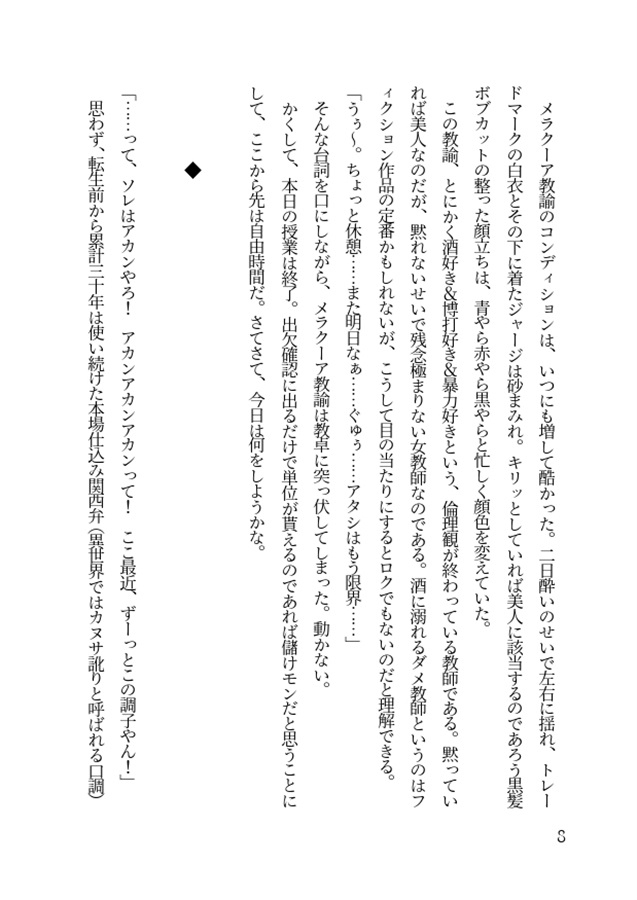 メラクーア教諭のコンディションは、いつにも増して酷かった。二日酔いのせいで左右に揺れ、トレー
ドマークの白衣とその下に着たジャージは砂まみれ。キリッとしていれば美人に該当するのであろう黒髪
ボブカットの整った顔立ちは、青やら赤やら黒やらと忙しく顔色を変えていた。
この教諭、とにかく酒好き&博打好き&暴力好きという、倫理観が終わっている教師である。黙ってい
れば美人なのだが、黙れないせいで残念極まりない女教師なのである。酒に溺れるダメ教師というのはフ
ィクション作品の定番かもしれないが、こうして目の当たりにするとロクでもないのだと理解できる。
「うぅ〜。ちょっと休憩……また明日なぁ……ぐゅぅ……アタシはもう限界……」
そんな台詞を口にしながら、メラクーア教諭は教卓に突っ伏してしまった。動かない。
かくして、本日の授業は終了。出欠確認に出るだけで単位が貰えるのであれば儲けモンだと思うことに
して、ここから先は自由時間だ。さてさて、今日は何をしようかな。
◆
「……って、ソレはアカンやろ！　アカンアカンアカンって！　ここ最近、ずーっとこの調子やん！」
思わず、転生前から累計三十年は使い続けた本場仕込み関西弁（異世界ではカヌサ訛りと呼ばれる口調）
8